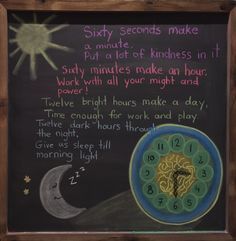 Sixty seconds make
a minute.
Put a lot of kindness in it.
Sixty minutes make an hour.
Work with all your might and
power!
Twelve bright hours make a day,
Time enough for work and play.
Twelve dark hours through
the night,
Give us sleep till
morning light
zzz
12
11 1
10 2
9 3
8 4
7 5
6